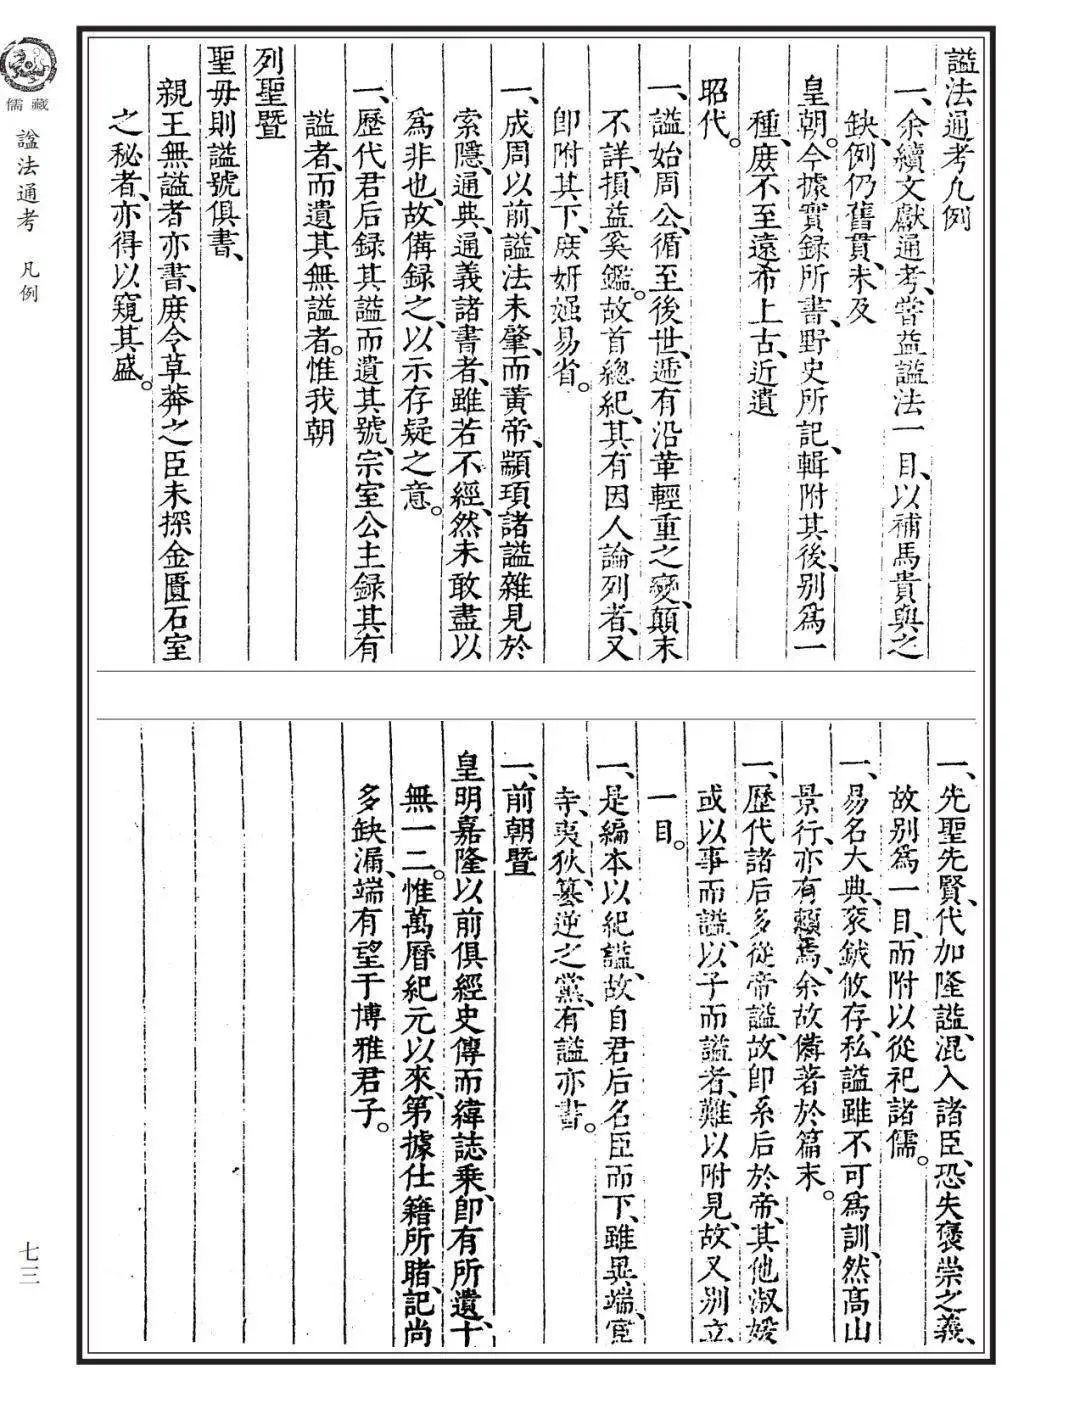 謚法通考凡例
一、余續文獻通考、嘗益謚法一目、以補馬貴與之
缺、例仍舊貫、未及
皇朝。今據實録所書、野史所記、輯附其後、别爲一
種、庻不至遠希上古、近遺
昭代。
一、謚始周公、循至後世、遞有沿革輕重之變、顛末
不詳、損益奚鑑。故首總紀、其有因人論列者、又
卽附其下、庻妍媸易省。
一、成周以前、謚法未肇、而黄帝、顓頊諸謚雜見於
索隱、通典、通義諸書者、雖若不經、然未敢盡以
爲非也、故備録之、以示存疑之意。
一、歷代君后録其謚而遺其號、宗室公主録其有
謚者、而遺其無謚者。惟我朝
列聖暨
聖毋則謚號俱書、
親王無謚者亦書、庻令草莽之臣未探金匱石室
之秘者、亦得以窺其盛。
一、先聖先賢、代加隆謚、混入諸臣、恐失褒崇之義、
故别爲一目、而附以從祀諸儒。
一、易名大典、衮鉞攸存、私謚雖不可爲訓、然高山
景行、亦有賴焉、余故備著於篇末。
一、歷代諸后多從帝謚、故卽系后於帝、其他淑媛
或以事而謚、以子而謚者、難以附見、故又别立
一目。
一、是編本以紀謚、故自君后名臣而下、雖異端、宦
寺、夷狄、簒逆之黨、有謚亦書。
一、前朝暨
皇明嘉隆以前俱經史傳而緯誌乗、卽有所遺、十
無一二。惟萬曆紀元以來、第據仕籍所睹、記尚
多缺漏、端有望于博雅君子。
儒藏
謚法通考 凡例
七三